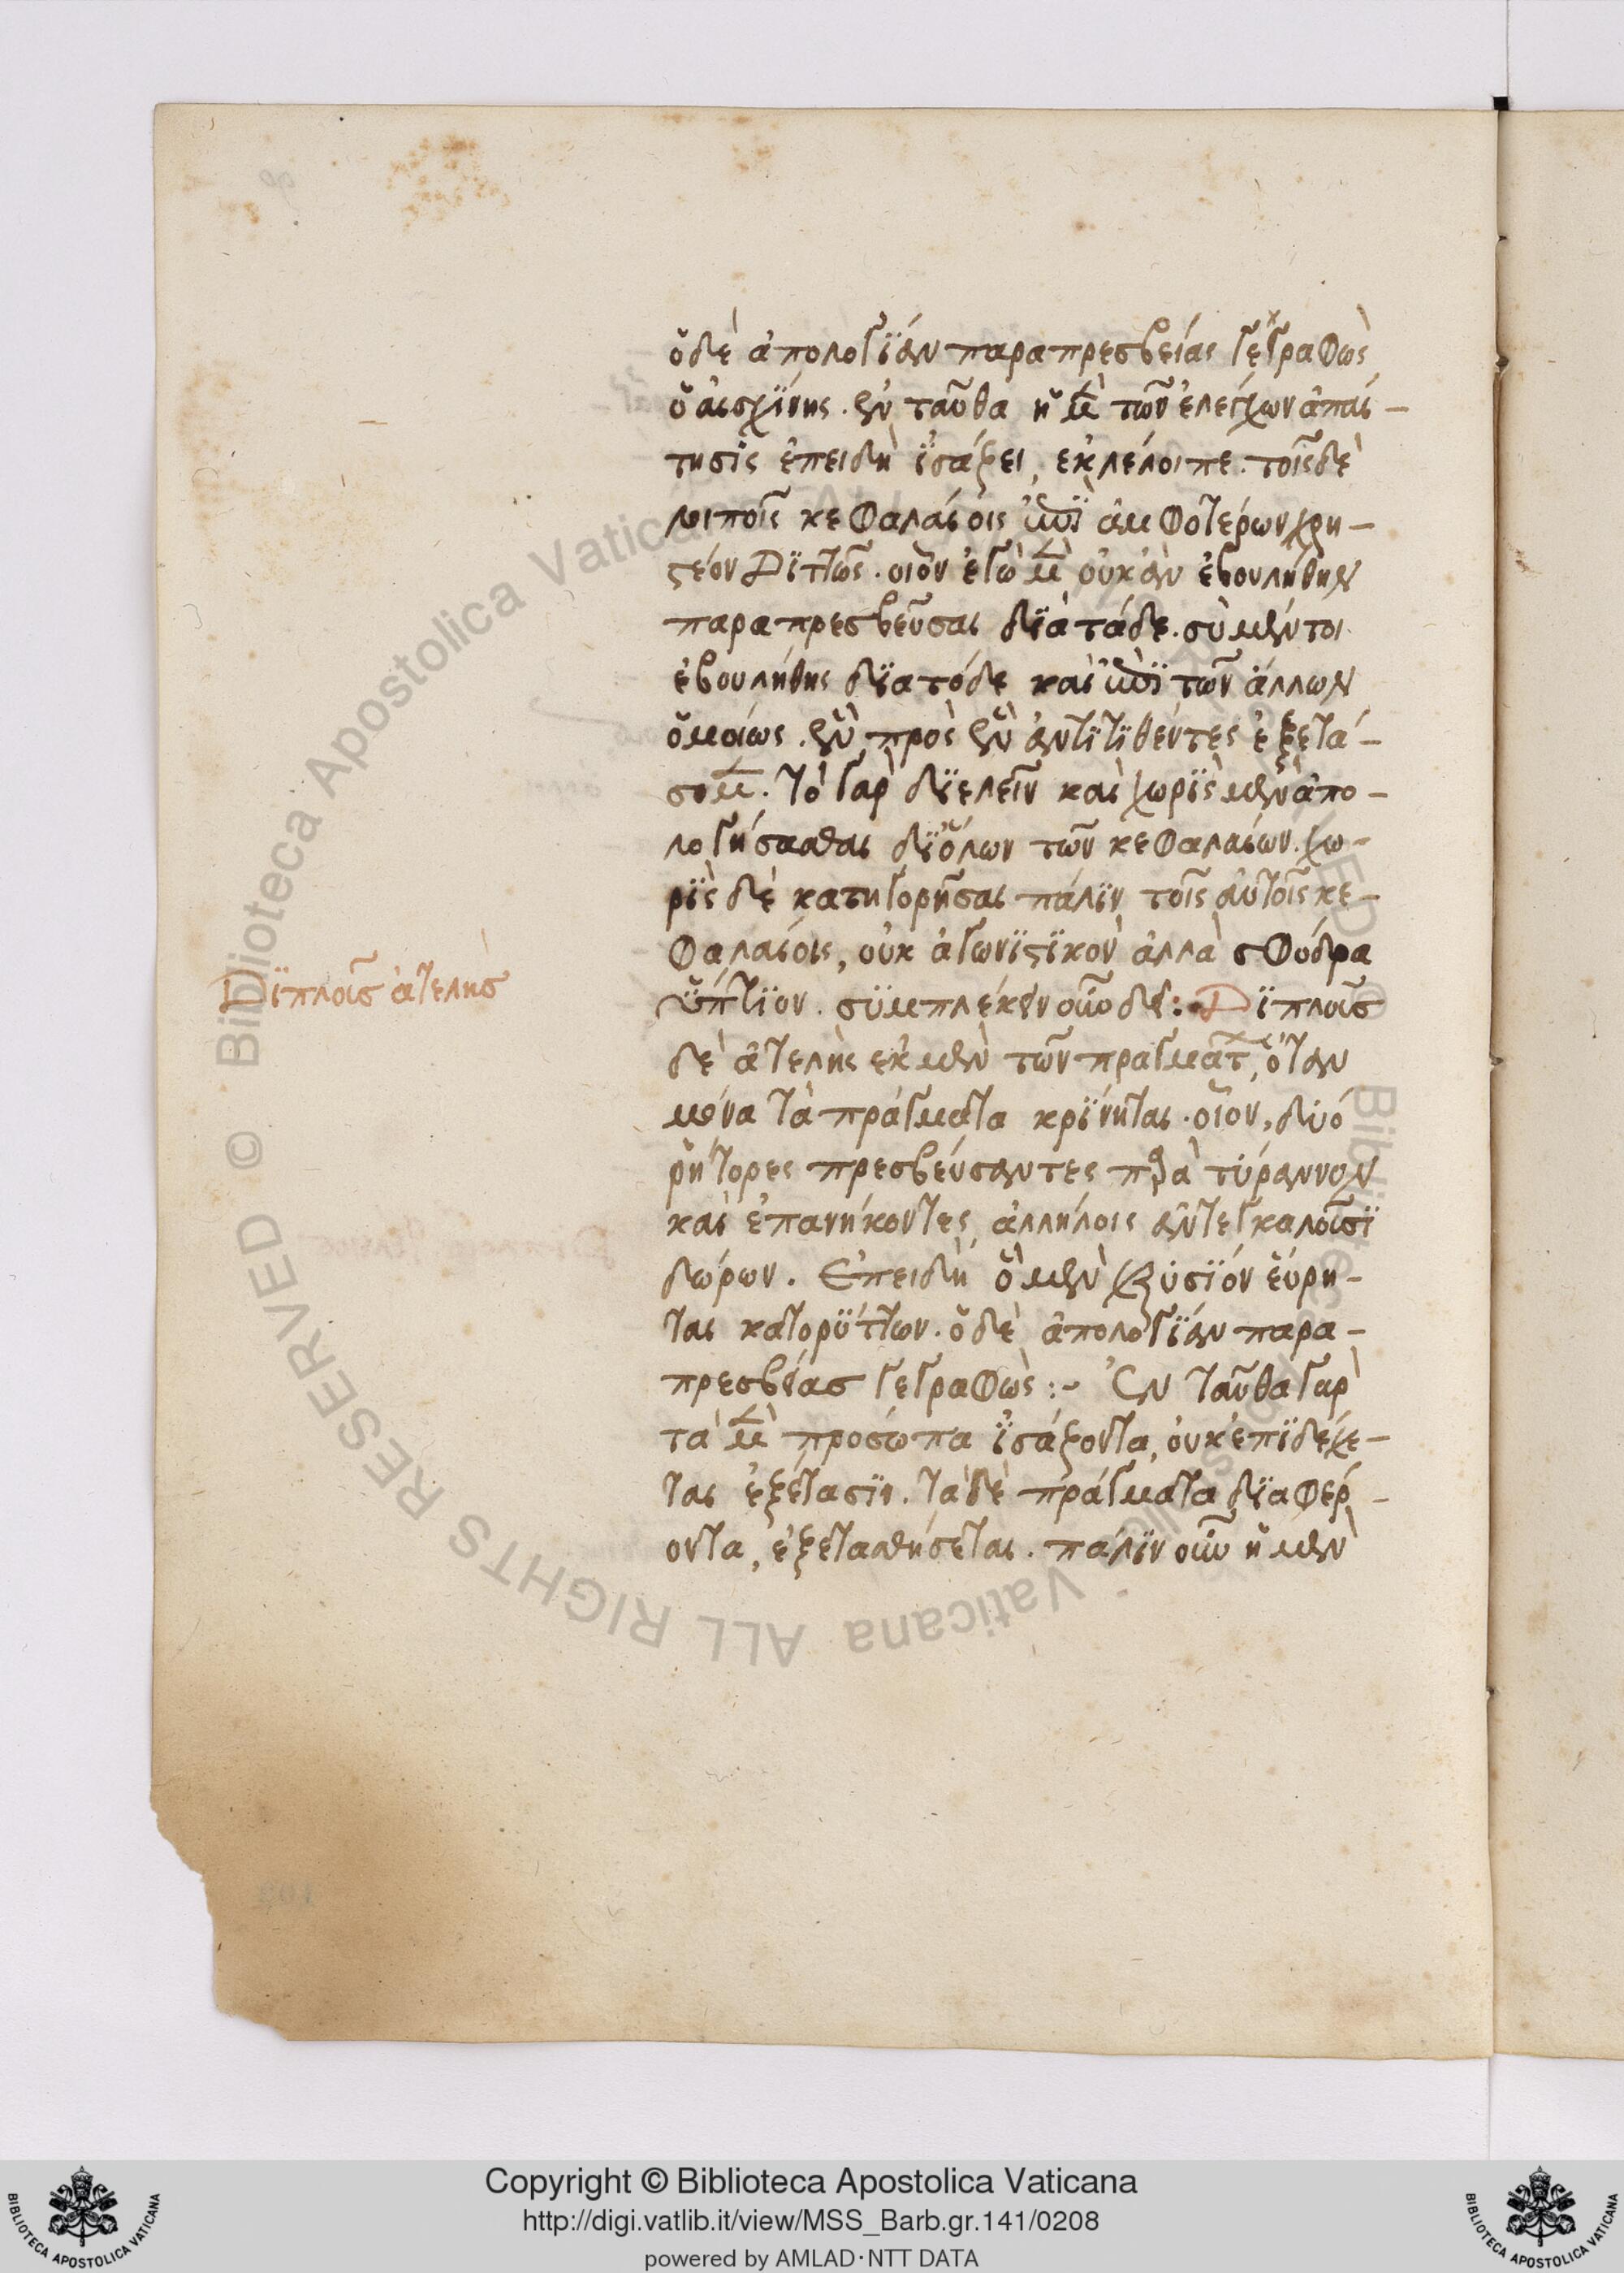 ὁδὲ ἀπολογίαν παραπρεσβείας γεγραφὼς
ὁ αἰσχίνης. ἐν ταῦθα ἡ μὲν τῶν ἐλέγχων ἀπαί-
τησις ἐπειδὴ ἰσάζει, ἐκλέλοιπε. τοῖς δὲ
λοιποῖς κεφαλαίοις ἐπὶ ἀμφοτέρων χρη-
στέον διττῶς. οἷον ἐγὼ μὲν οὐκ ἂν ἐβουλήθην
παραπρεσβεῦσαι διὰ τάδε. σὺ μέντοι
ἐβουλήθης διὰ τόδε καὶ ἐπὶ τῶν ἄλλων
ὁμοίως. ἓν πρὸς ἓν ἀντιτιθέντες ἐξετά-
σομεν. τὸ γὰρ διελεῖν καὶ χωρὶς μὲν ἀπο-
λογήσασθαι δι' ὅλων τῶν κεφαλαίων. χω-
ρὶς δὲ κατηγορῆσαι πάλιν τοῖς αὐτοῖς κε-
φαλαίοις, οὐκ ἀγωνιστικὸν ἀλλὰ σφόδρα
Διπλοῦς ἀτελὴς
ὕπτιον. συμπλέκειν οὖν δεῖ: Διπλοῦς
δὲ ἀτελὴς ἐκ μὲν τῶν πραγμάτ, ὅταν
μόνα τὰ πράγματα κρίνηται. οἷον, δύο
ῥήτορες πρεσβεύσαντες παρὰ τύραννον
καὶ ἐπανήκοντες ἀλλήλοις ἀντεγκαλοῦσι
δώρων. Ἐπειδὴ ὁ μὲν χρυσίον εὕρη-
ται κατορύττων. ὁ δὲ ἀπολογίαν παρα-
πρεσβείας γεγραφὼς :- Ἐν ταῦθα γὰρ
τὰ μὲν πρόσωπα ἰσάζοντα, οὐκ ἐπιδέχε-
ται ἐξέτασιν. τὰ δὲ πράγματα διαφέρ-
οντα, ἐξετασθήσεται. πάλιν οὖν ἡ μὲν
Copyright © Biblioteca Apostolica Vaticana
http://digi.vatlib.it/view/MSS_Barb.gr.141/0208
powered by AMLAD·NTT DATA
BIBLIOTECA APOSTOLICA VATICANA
BIBLIOTECA APOSTOLICA VATICANA